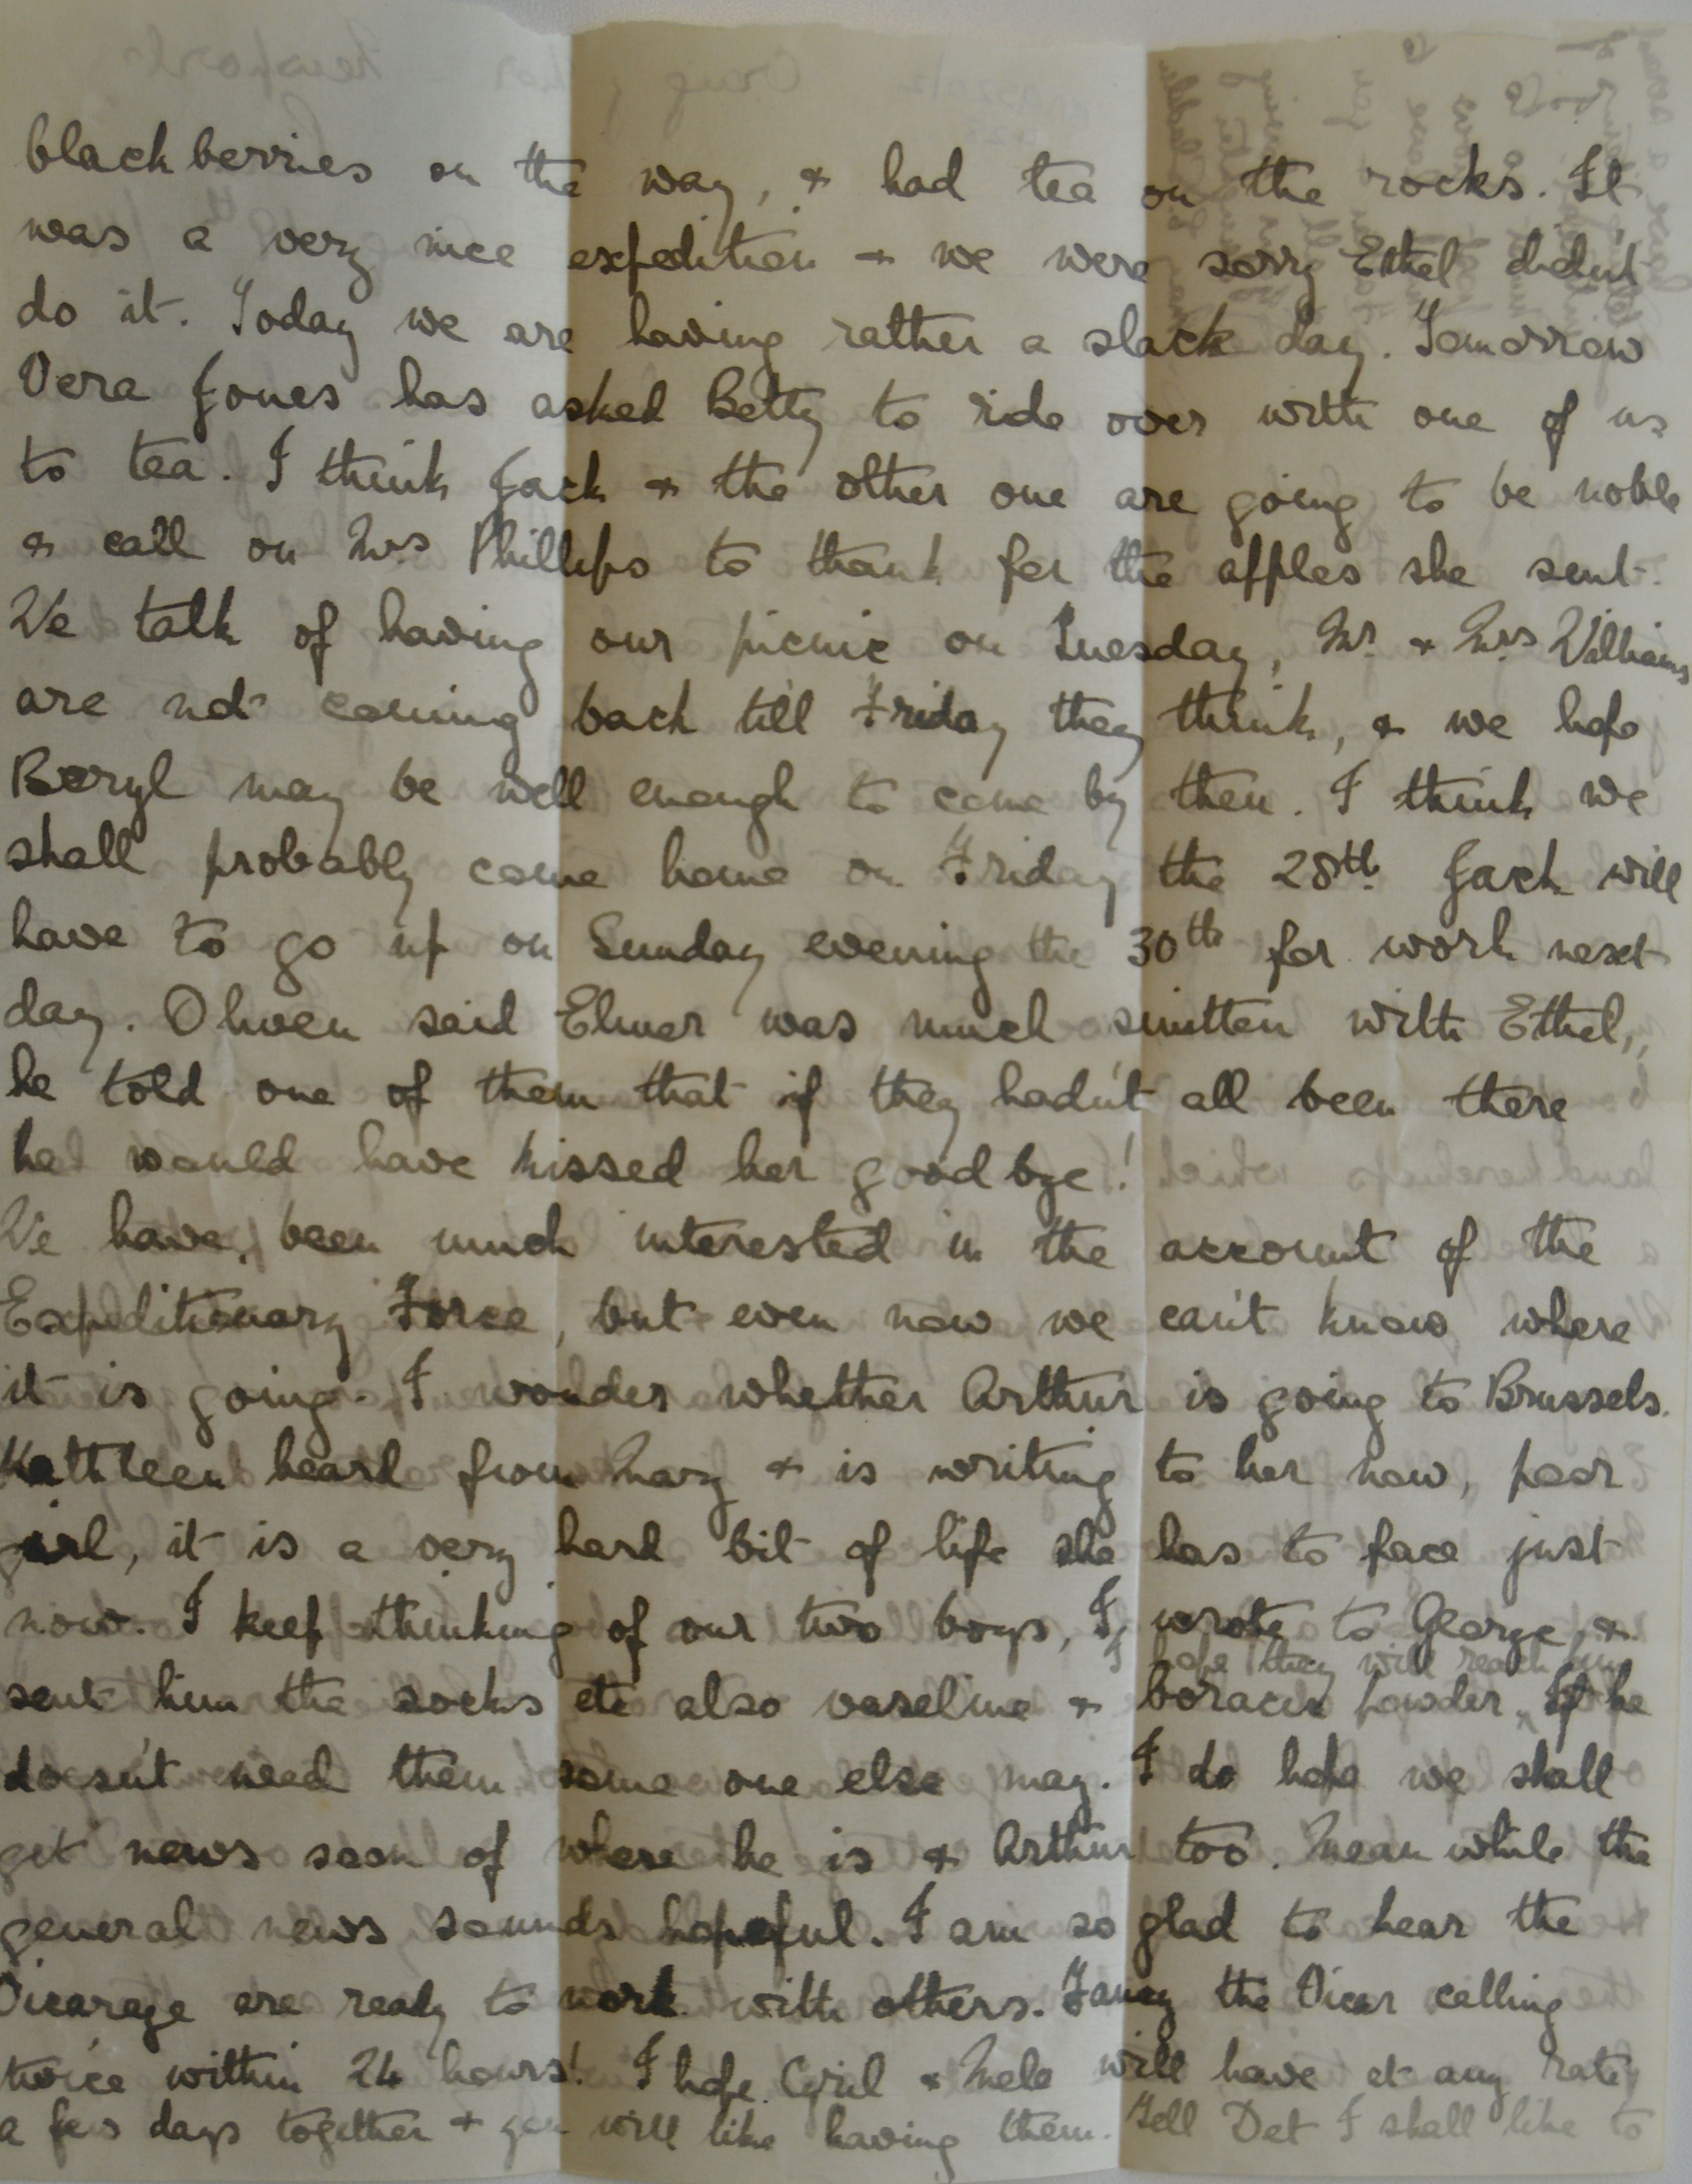 blackberries on the way, & had tea on the rocks. It
was a very nice expedition & we were sorry Ethel didn't
do it. Today we are having rather a slack day. Tomorrow
Vera Jones has asked Betty to ride over with one of us
to tea. I think Jack & the other one are going to be noble
& call on Mrs Phillips to thank for the apples she sent.
We talk of having our picnic on Tuesday, Mr. & Mrs Williams
are not coming back till Friday they think, & we hope
Beryl may be well enough to come by then. I think we
shall probably come home on Friday the 28th. Jack will
have to go up on Sunday evening the 30th for work next
day. Olwen said Elmer was much smitten with Ethel,
he told one of them that if they hadn't all been there
he would have kissed her goodbye!
We have been much interested in the account of the
Expeditionary Force, but even now we can't know where
it is going. I wonder whether Arthur is going to Brussels.
Kathleen heard from Mary & is writing to her now, poor
girl, it is a very hard bit of life she has to face just
now. I keep thinking of our two boys, I wrote to George, &
hope they will reach him
sent him the socks etc also vaseline & boracic powder. If he
doesn't need them some one else may. I do hope we shall
get news soon of where he is & Arthur too. Mean while the
general news sounds hopeful. I am so glad to hear the
Vicarage are ready to work with others. Fancy the Vicar calling
twice within 24 hours! I hope Cyril & Mela will have at any rate
a few days together & you will like having them. Tell Det I shall like to